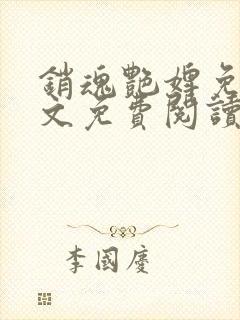 銷魂艷婢免
文免費閱讀
李國慶